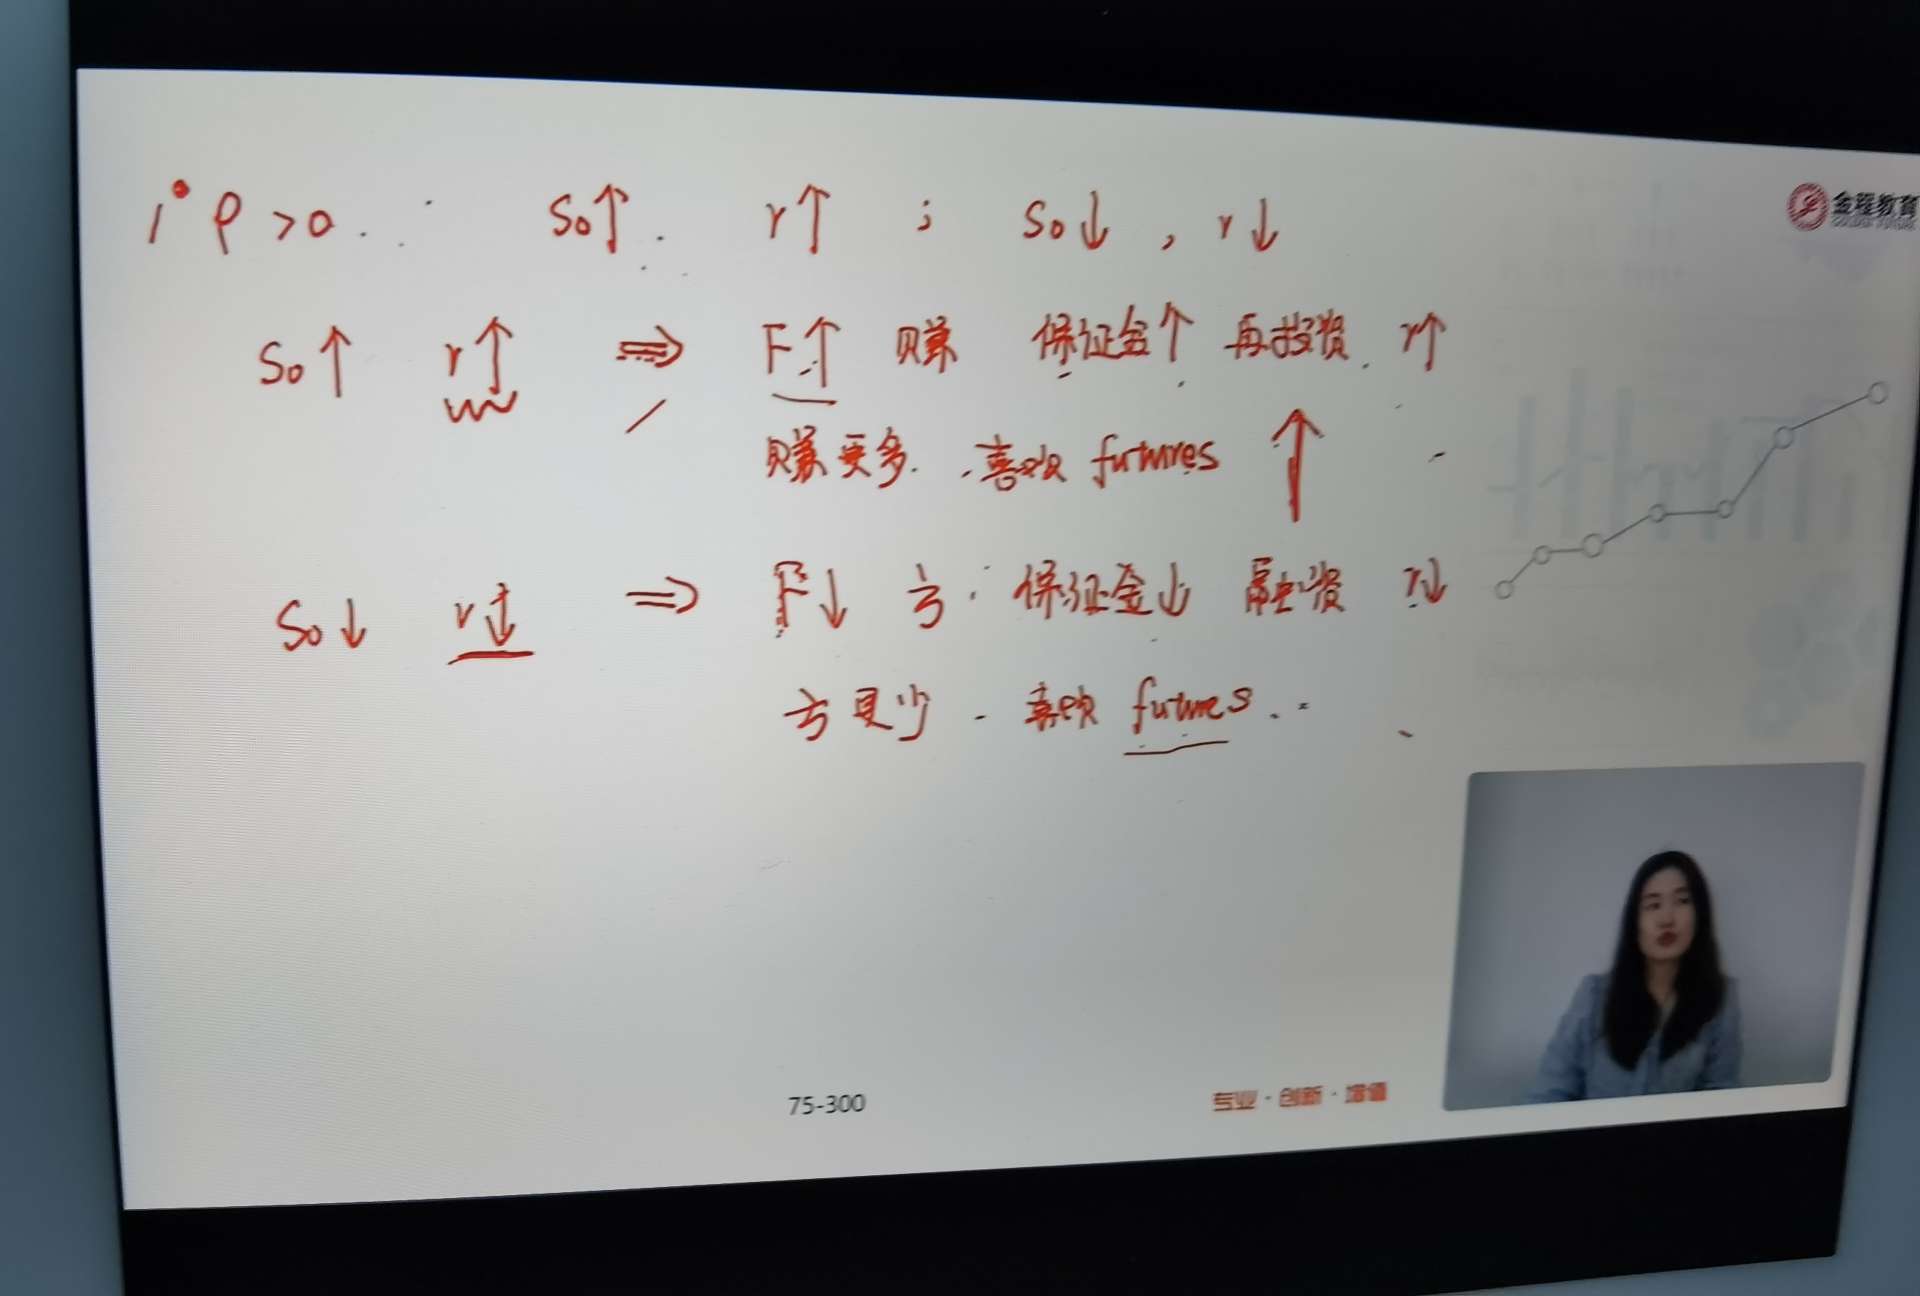 1° ρ>0. : S₀↑. r↑ ; S₀↓ , r↓
金程教育
S₀↑ r↑ ⇒ F↑ 赚 保证金↑ 再投资. r↑
赚更多. 喜欢 futures ↑
S₀↓ r↓ ⇒ F↓ 亏. 保证金↓ 融资 r↓
亏更少 - 喜欢 futures..
75-300
专业·创新·增值